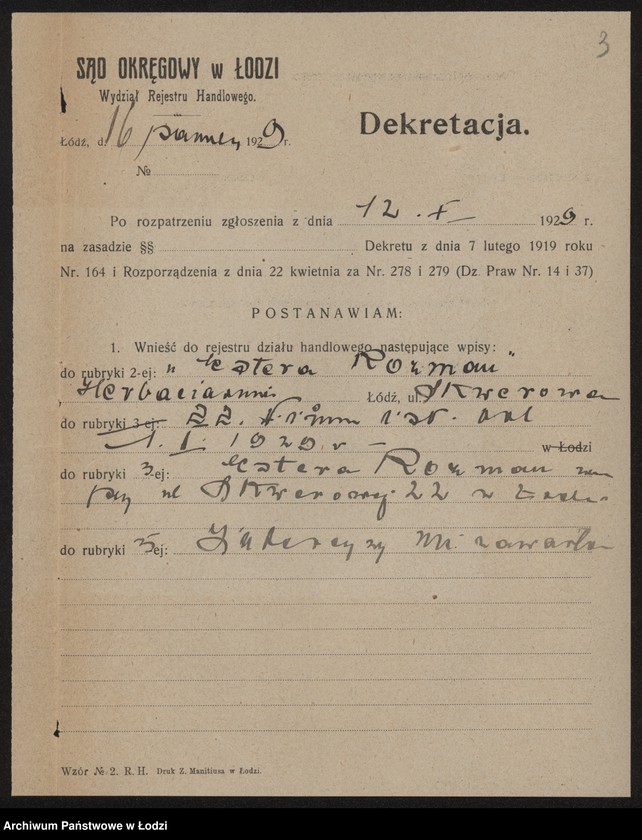 3
SĄD OKRĘGOWY w ŁODZI
Wydział Rejestru Handlowego.
Dekretacja.
Łódź, d. 16 1929 r.
№
Po rozpatrzeniu zgłoszenia z dnia 12. X 1929 r.
na zasadzie §§ Dekretu z dnia 7 lutego 1919 roku
Nr. 164 i Rozporządzenia z dnia 22 kwietnia za Nr. 278 i 279 (Dz. Praw Nr. 14 i 37)
POSTANAWIAM:
1. Wnieść do rejestru działu handlowego następujące wpisy:
do rubryki 2-ej: „Estera Rozman"
Herbaciarnia Łódź, ul. Skwerowa
do rubryki 3-ej: 22. Firma ist. od
1. I. 1929 r — w Łodzi
do rubryki 3-ej: Estera Rozman zam
przy ul Skwerowej 22 w Łodzi
do rubryki 5-ej: Intercyzy nie zawarła
Wzór № 2. R. H. Druk Z. Manitiusa w Łodzi.
Archiwum Państwowe w Łodzi